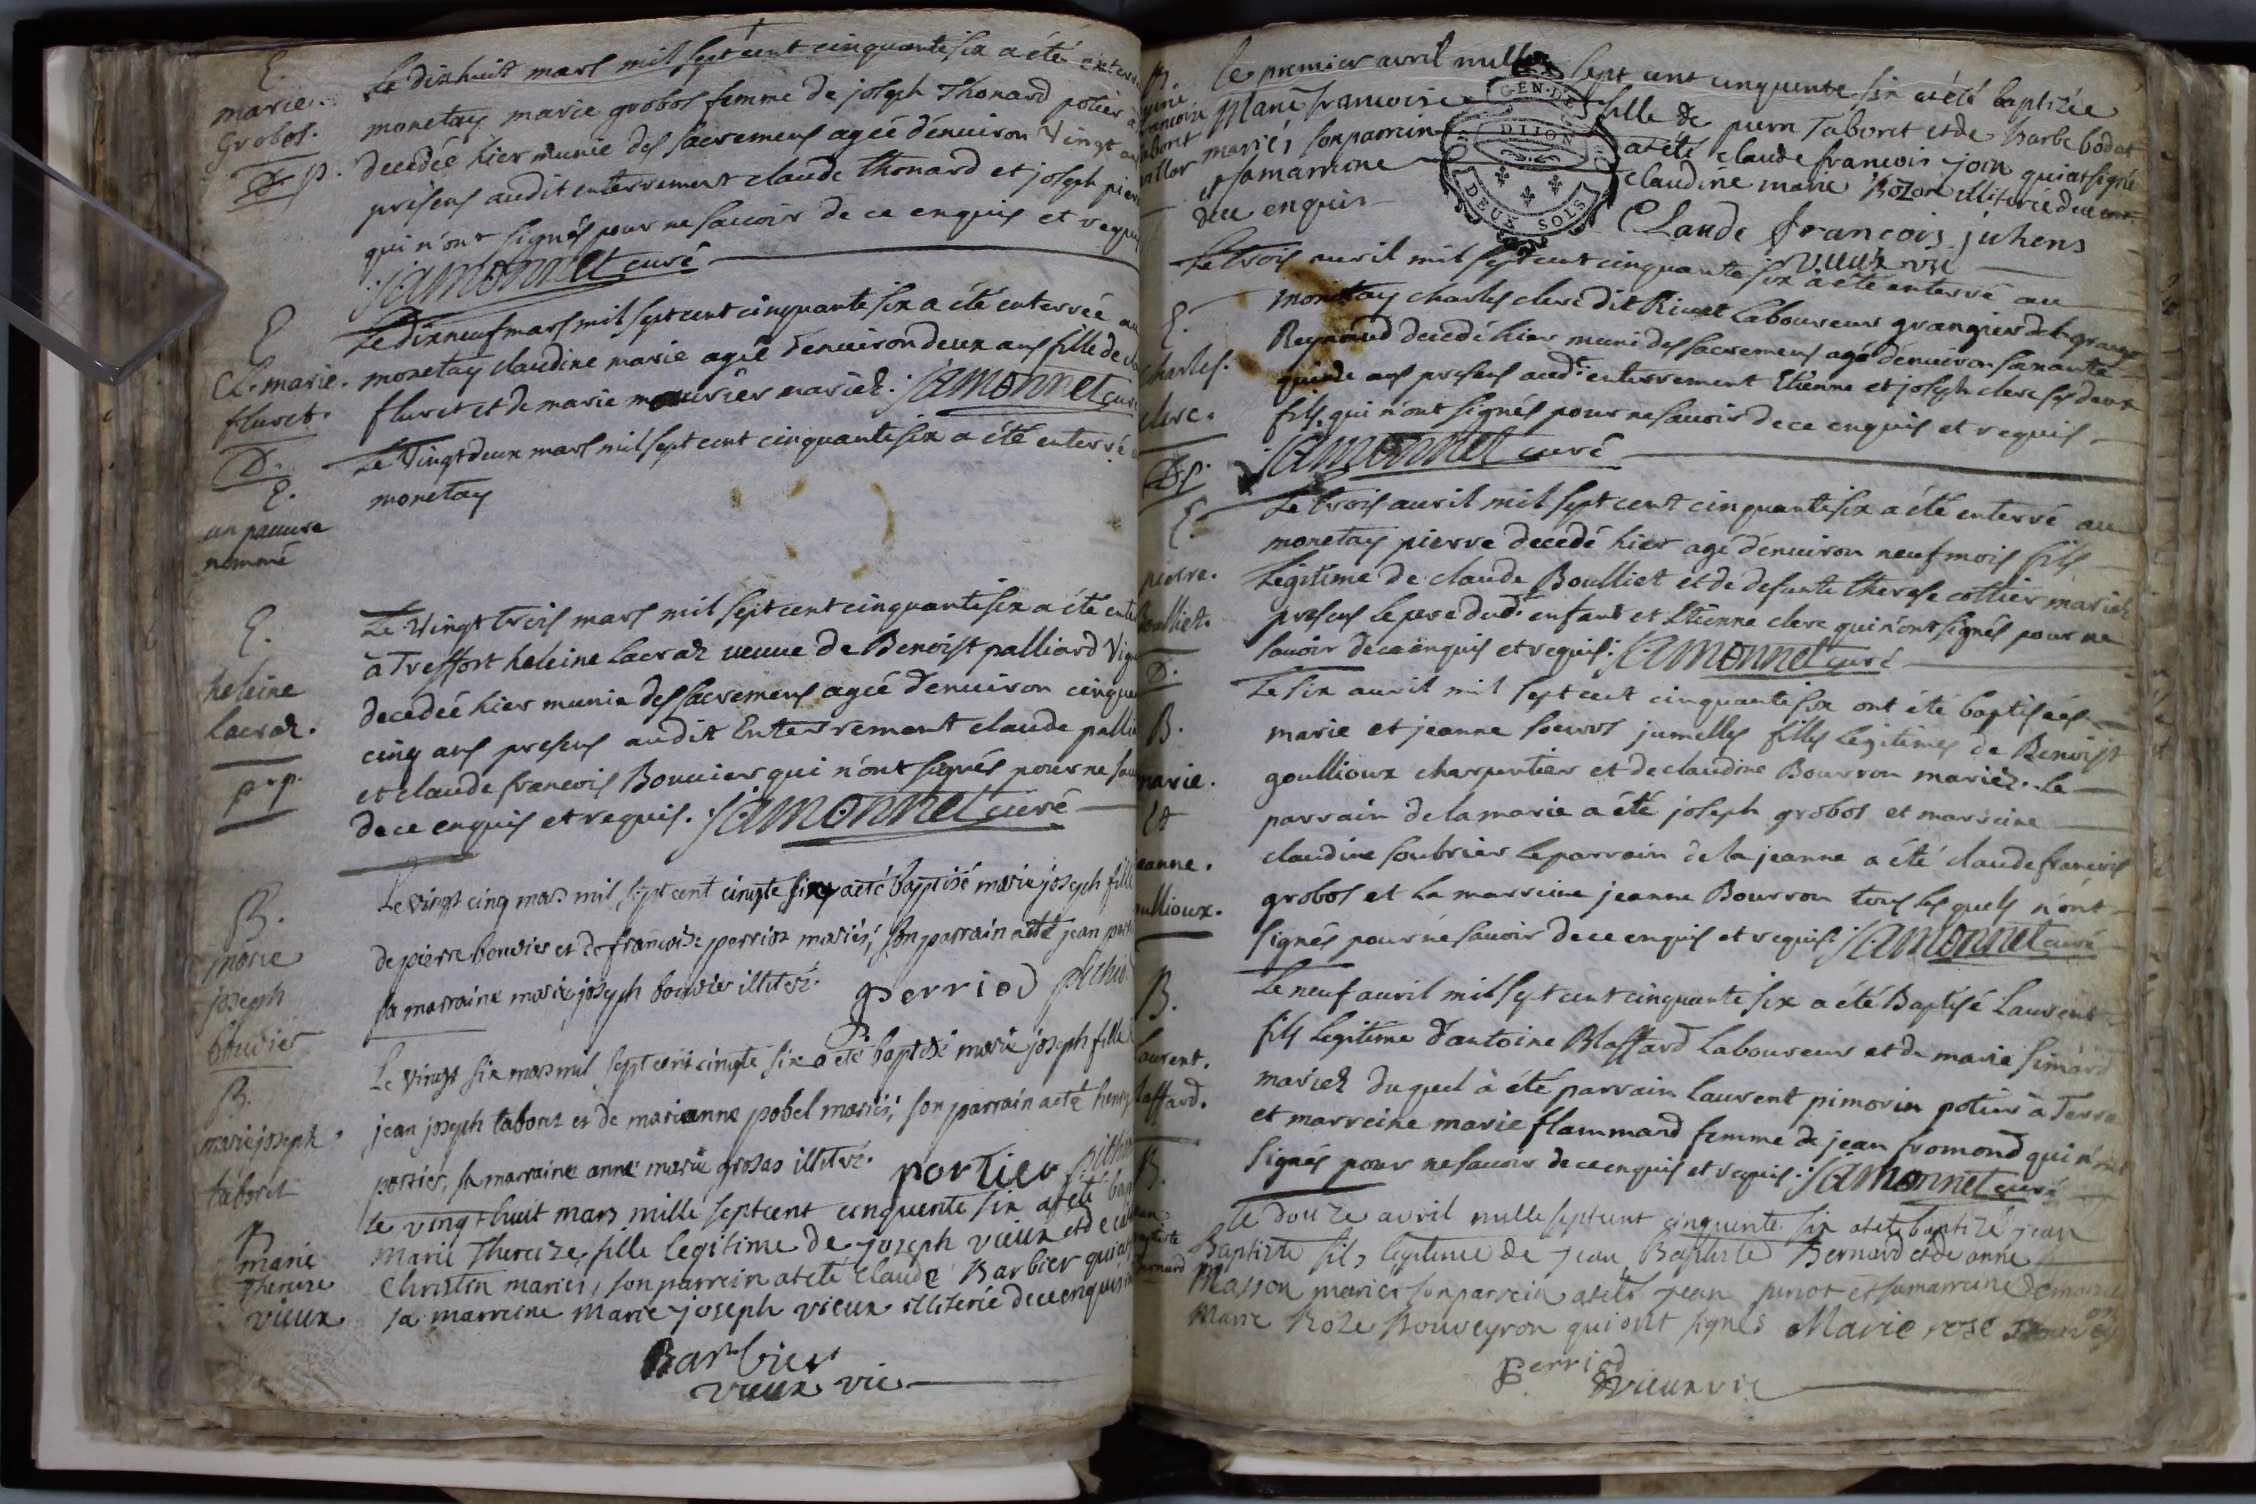 E.
marie
Grobos.
D. p.
Le dixhuit mars mil sept cent cinquante six a été enterrée
monetay marie grobos femme de joseph Thonard potier à
decedée hier munie des sacremens agée d'enuiron Vingt
presens audit enterrement claude thonard et joseph
qui n'ont signés pour ne sauoir de ce enquis et requis
jamonnet curé
E
Cl. marie.
fluret.
D.
Le dixneuf mars mil sept cent cinquante six a été enterrée au
monetay claudine marie agée d'enuiron deux ans fille de
fluret et de marie mariez. jamonnet curé
E.
un pauure
nommé
Le Vingt deux mars mil sept cent cinquante six a été enterré
monetay
E.
heleine
Lacraz.
p.p.
Le Vingt trois mars mil sept cent cinquante six a été
à Treffort heleine Lacraz ueuue de Benoist palliard
decedée hier munie des sacremens agée d'enuiron
cinq ans presens audit Enterrement claude
et claude francois Bouuier qui n'ont signés pour ne
de ce enquis et requis. jamonnet curé
B.
marie
joseph
bouvier
Le vingt cinq mars mil sept cent cinqte six a eté baptisé marie joseph fille
de pierre bouvier et de francoise perrioz mariés; son parrain a eté jean
sa marraine marie joseph bouvier illiteré.
perriod
B.
marie joseph
taboret
Le vingt six mars mil sept cent cinqte six a eté baptisé marie joseph fille
jean joseph taboret et de marianne pobel mariés; son parrain a eté henry
portier, sa marraine anne marie grosas illiteré.
portier
B
marie
Thereze
vieux
Le vingt huit mars mille sept cent cinquente six a eté
Marie Thereize fille legitime de joseph vieux et de
Christin mariés, son parrein a eté claude Barbier qui a
sa marreine Marie joseph vieux illiterée de ce enquis
Barbier
vieux vic
B.
Le premier avril mille sept cent cinquente six a été baptizée
Marie francoise fille de pierre Taboret et de barbe bodet
mariés son parrein a été claude francois join qui a signé
et sa marreine claudine marie Bozon illiterée de ce
enquis
GEN. DE
DIJON
DEUX SOLS
Claude francois juhens
vieux vic
E.
charles.
clerc.
D. p.
Le trois auril mil sept cent cinquante six a été enterré au
monetay charles clerc dit Riuet Laboureur grangier de la grange
Reymond decedé hier muni des sacremens agé d'enuiron soixante
quinze ans presens audt. enterrement Etienne et joseph clerc ses deux
fils qui n'ont signés pour ne sauoir de ce enquis et requis
jamonnet curé
E.
pierre.
boulliet.
D.
Le trois auril mil sept cent cinquante six a été enterré au
monetay pierre decedé hier agé d'enuiron neuf mois fils
Legitime de claude Boulliet et de defunte therese cottier mariez
presens le pere dudt. enfant et Etienne clerc qui n'ont signés pour ne
sauoir de ce enquis et requis. jamonnet curé
B.
marie.
Et
jeanne.
goullioux.
Le six auril mil sept cent cinquante six ont été baptisées
marie et jeanne soeurs jumelles filles Legitimes de Benoist
goullioux charpentier et de claudine Bourron mariez. Le
parrain de la marie a été joseph grobos et marreine
claudine soubrier le parrain de la jeanne a été claude francois
grobos et La marreine jeanne Bourron tous les quels n'ont
signés pour ne sauoir de ce enquis et requis. jamonnet curé
B.
Laurent.
blaffard.
Le neuf auril mil sept cent cinquante six a été Baptisé Laurent
fils Legitime d'antoine Blaffard Laboureur et de marie simard
mariez du quel à été parrain Laurent pimorin potier à Terre
et marreine marie flammand femme de jean fromond qui n'ont
signés pour ne sauoir de ce enquis et requis. jamonnet curé
B.
jean
baptiste
bernard
Le douze avril mille sept cent cinquente six a eté baptizé jean
Baptiste fils legitime de jean Baptiste Bernard et de anne
Masson mariés son parrein a eté jean et sa marreine
Marie Roze Bouveyron qui ont signés Marie rose
perriod
vieux vic